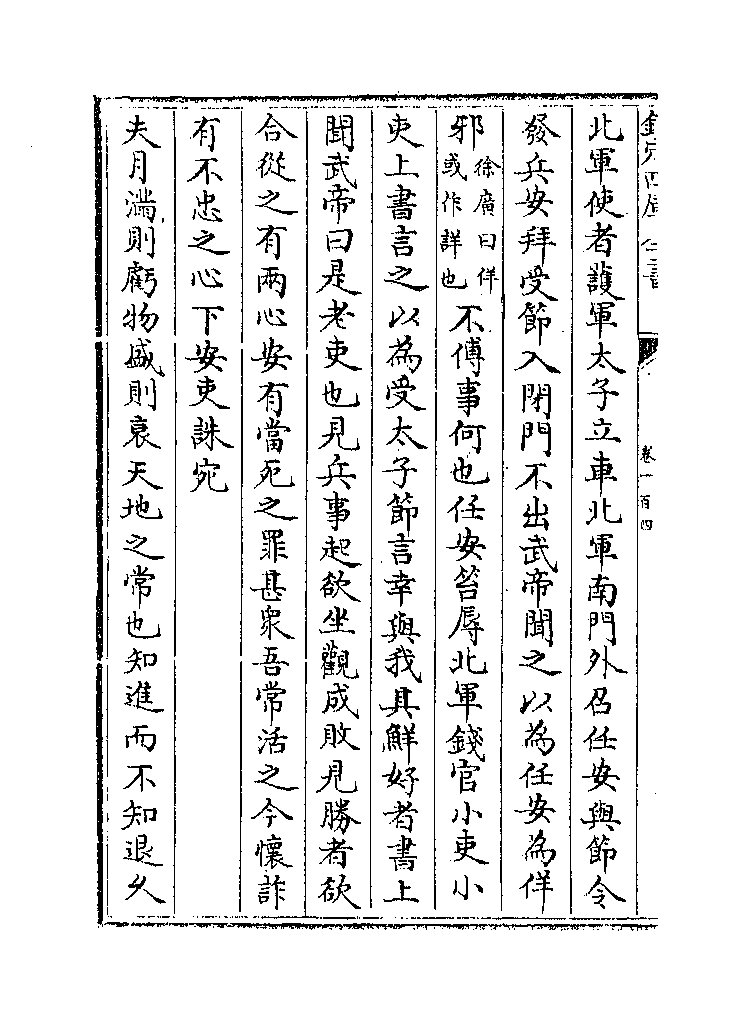 欽定四庫全書
卷一百四
北軍使者護軍太子立車北軍南門外召任安與節令
發兵安拜受節入閉門不出武帝聞之以為任安為佯
邪徐廣曰佯或作詳也不傅事何也任安笞辱北軍錢官小吏小
吏上書言之以為受太子節言幸與我其鮮好者書上
聞武帝曰是老吏也見兵事起欲坐觀成敗見勝者欲
合從之有兩心安有當死之罪甚衆吾常活之今懷詐
有不忠之心下安吏誅宛
夫月滿則虧物盛則衰天地之常也知進而不知退久